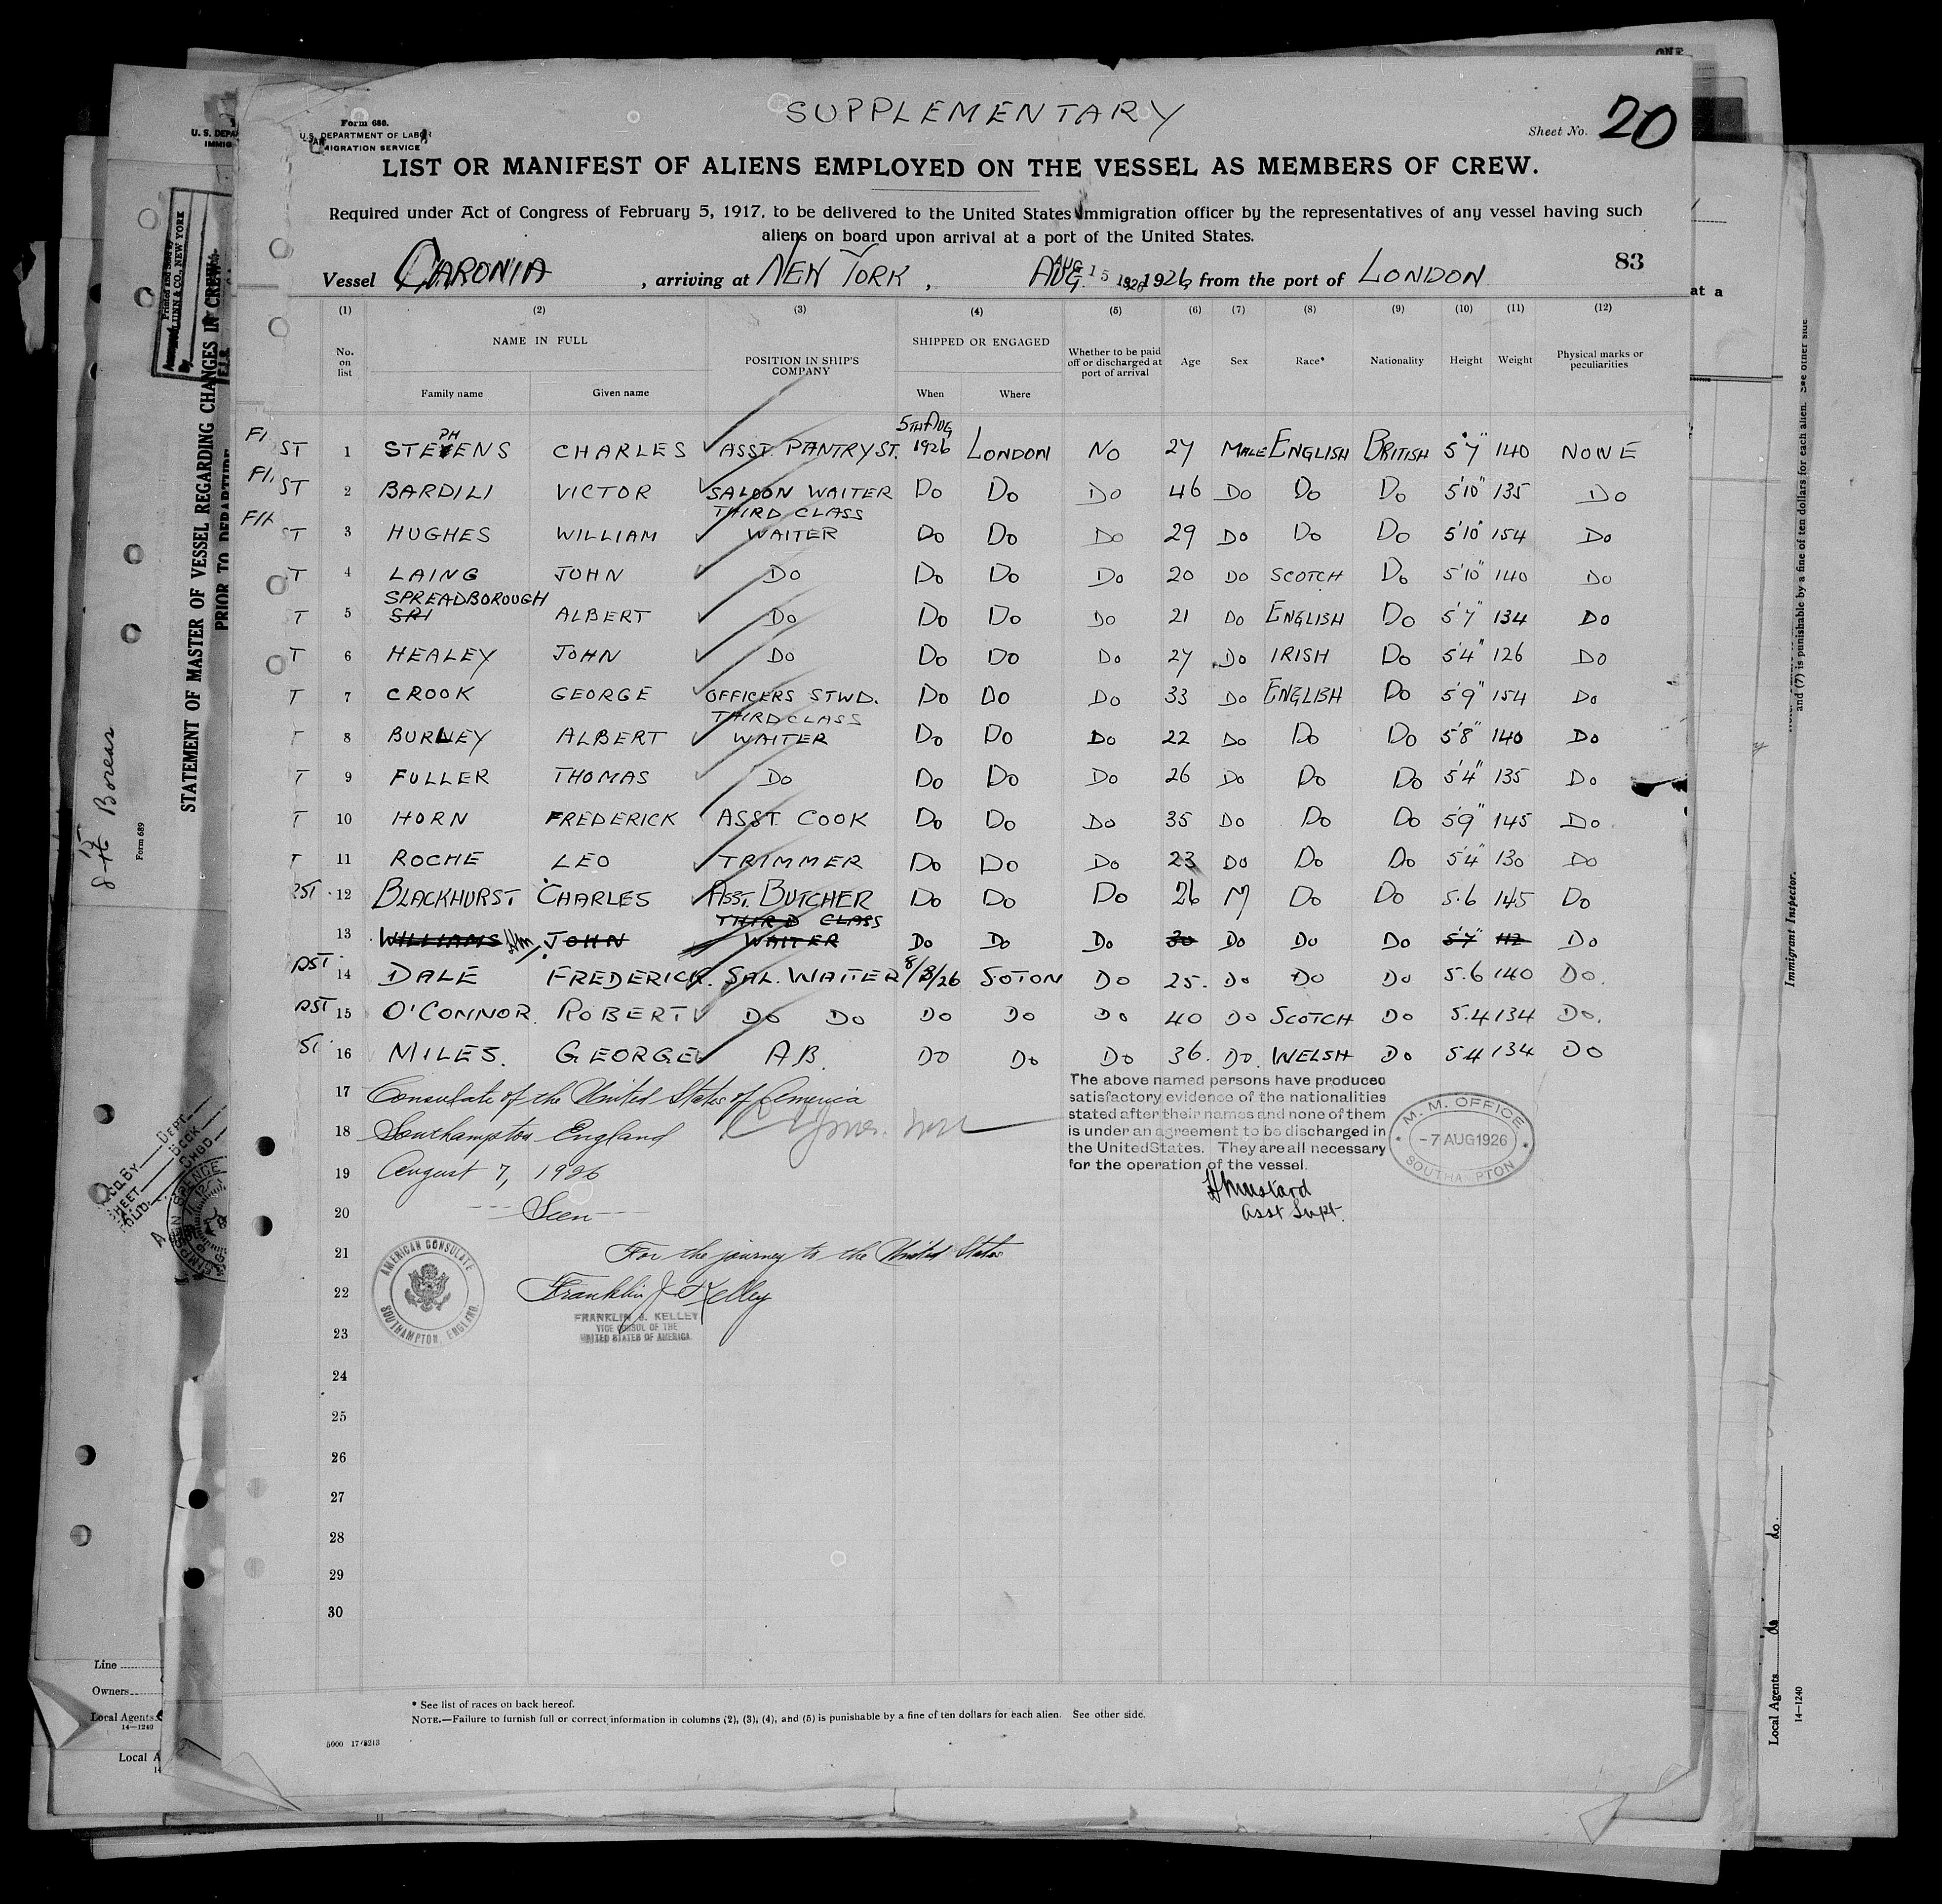 SUPPLEMENTARY
Form 680.
U. S. DEPARTMENT OF LABOR
IMMIGRATION SERVICE
Sheet No. 20
LIST OR MANIFEST OF ALIENS EMPLOYED ON THE VESSEL AS MEMBERS OF CREW.
Required under Act of Congress of February 5, 1917, to be delivered to the United States Immigration officer by the representatives of any vessel having such
aliens on board upon arrival at a port of the United States.
83
Vessel CARONIA, arriving at NEW YORK, AUG. AUG 15 1926 1926, from the port of LONDON
(1) (2) (3) (4) (5) (6) (7) (8) (9) (10) (11) (12)
No. on list NAME IN FULL POSITION IN SHIP'S COMPANY SHIPPED OR ENGAGED Whether to be paid off or discharged at port of arrival Age Sex Race* Nationality Height Weight Physical marks or peculiarities
Family name Given name When Where
ST 1 STEPHENS CHARLES ASST. PANTRYST. 5TH AUG 1926 LONDON NO 27 MALE ENGLISH BRITISH 5'7" 140 NONE
ST 2 BARDILI VICTOR SALOON WAITER DO DO DO 46 DO DO DO 5'10" 135 DO
ST 3 HUGHES WILLIAM THIRD CLASS WAITER DO DO DO 29 DO DO DO 5'10" 154 DO
T 4 LAING JOHN DO DO DO DO 20 DO SCOTCH DO 5'10" 140 DO
T 5 SPREADBOROUGH SRI ALBERT DO DO DO DO 21 DO ENGLISH DO 5'7" 134 DO
T 6 HEALEY JOHN DO DO DO DO 27 DO IRISH DO 5'4" 126 DO
T 7 CROOK GEORGE OFFICERS STWD. DO DO DO 33 DO ENGLISH DO 5'9" 154 DO
T 8 BURLEY ALBERT THIRD CLASS WAITER DO DO DO 22 DO DO DO 5'8" 140 DO
T 9 FULLER THOMAS DO DO DO DO 26 DO DO DO 5'4" 135 DO
T 10 HORN FREDERICK ASST. COOK DO DO DO 35 DO DO DO 5'9" 145 DO
T 11 ROCHE LEO TRIMMER DO DO DO 23 DO DO DO 5'4" 130 DO
ST 12 BLACKHURST CHARLES ASST. BUTCHER DO DO DO 26 M DO DO 5.6 145 DO
13 WILLIAMS JOHN THIRD CLASS WAITER DO DO DO 30 DO DO DO 5'7" 112 DO
DST 14 DALE FREDERICK. SAL. WAITER 8/8/26 SOTON DO 25. DO DO DO 5.6 140 DO.
DST 15 O'CONNOR. ROBERT DO DO DO DO DO 40 DO SCOTCH DO 5.4 134 DO.
ST 16 MILES. GEORGE AB. DO DO DO 36. DO. WELSH DO 5.4 134 DO
17
18
19
20
21
22
23
24
25
26
27
28
29
30
Consulate of the United States of America
Southampton England
August 7, 1926
Seen
For the journey to the United States
Franklin J Kelley
FRANKLIN J. KELLEY
VICE CONSUL OF THE
UNITED STATES OF AMERICA
AMERICAN CONSULATE
SOUTHAMPTON, ENGLAND.
The above named persons have produced
satisfactory evidence of the nationalities
stated after their names and none of them
is under an agreement to be discharged in
the United States. They are all necessary
for the operation of the vessel.
H Mustard
Asst Supt.
M. M. OFFICE
-7 AUG 1926
SOUTHAMPTON
* See list of races on back hereof.
NOTE.—Failure to furnish full or correct information in columns (2), (3), (4), and (5) is punishable by a fine of ten dollars for each alien. See other side.
5000 17/8213
STATEMENT OF MASTER OF VESSEL REGARDING CHANGES IN CREW
PRIOR TO DEPARTURE
Form 689
Line
Owners
Local Agents
14—1240
Local A
at a
and (7) is punishable by a fine of ten dollars for each alien. See other side.
Immigrant Inspector.
Local Agents do do.
14—1240